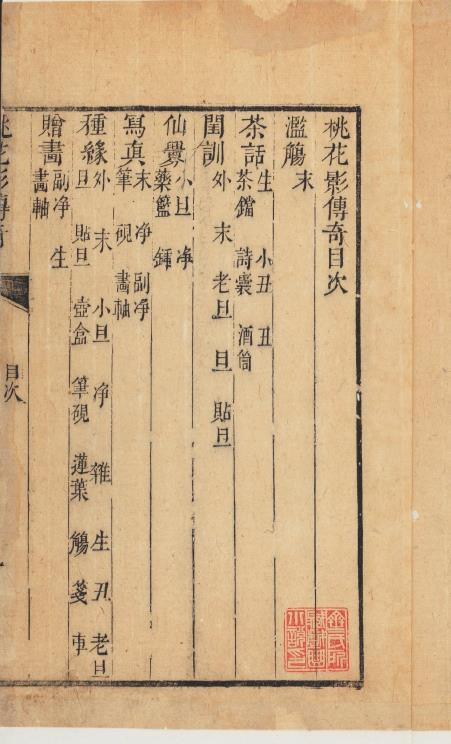 桃花影傳奇目次
濫觴 末
茶話 生 小丑 丑
茶鐺 詩囊 酒筒
閨訓 外 末 老旦 旦 貼旦
仙 小旦 净
藥籃
寫真 末 净 副净
筆 硯 畫軸
種緣 外 末 小旦 净 雜 生 丑 老旦
旦 貼旦 壺盒 筆硯 蓮葉 觴 箋 車
贈畫 副净 生
畫軸
桃花影傳奇
目次